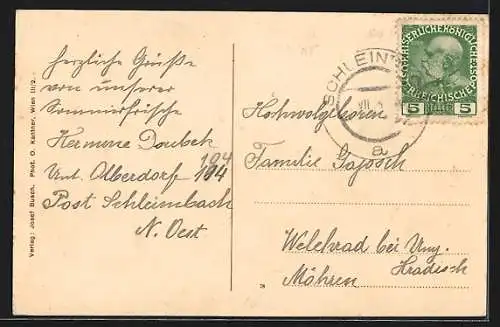 herzliche Grüße
von unserer
Sommerfrische
Hermine
Unt. Olberndorf 184
194
Post Schleinbach
N. Oest
Verlag: Josef Busch. Phot. O. Kantner, Wien III/2.
SCHLEIN
VII
a
KAISERLICHE KÖNIGLICHE
ÖSTERREICHISCHE
5 HELLER 5
Hochwolgeboren
Familie Gajosch
Welehrad bei Ung.
Hradisch
Mähren